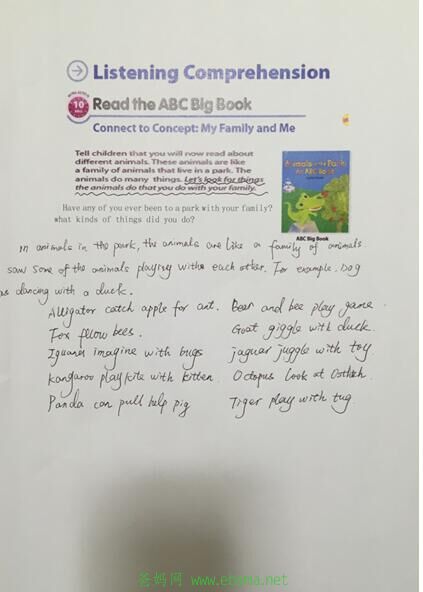 Listening Comprehension
10
Read the ABC Big Book
Connect to Concept: My Family and Me
Tell children that you will now read about
different animals. These animals are like
a family of animals that live in a park. The
animals do many things. Let's look for things
the animals do that you do with your family.
Animals in the Park
An ABC Book
ABC Big Book
Have any of you ever been to a park with your family?
what kinds of things did you do?
In animals in the park, the animals are like a family of animals.
saw some of the animals playing withe each other. For example. Dog
as dancing with a duck.
Alligator catch apple for ant. Bear and bee play game.
Fox fellow bees. Goat giggle with duck.
Iguana imagine with bugs jaguar juggle with toy.
kangaroo play kite with kitten. Octopus look at Ostrich.
Panda can pull help pig Tiger play with tug.
爸妈网 www.ebama.net